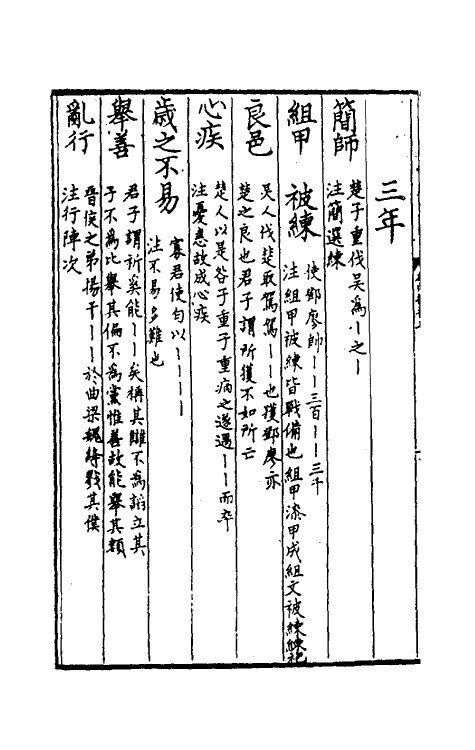 三年
簡師 楚子重伐吳為丨之丨
注簡選練
組甲 被練 使鄧廖帥丨丨三百丨丨三千
注組甲被練皆戰備也組甲漆甲成組文被練練袍
良邑 吳人伐楚取駕駕丨丨也獲鄧廖亦
楚之良也君子謂所獲不如所亡
心疾 楚人以是咎子重子重病之遂遇丨丨而卒
注憂恚故成心疾
歲之不易 寡君使匄以丨丨丨丨
注不易多難也
舉善 君子謂祈奚能丨丨矣稱其讎不為謟立其
子不為比舉其偏不為黨惟善故能舉其類
亂行 晉侯之弟揚干丨丨於曲梁魏絳戮其僕
注行陣次